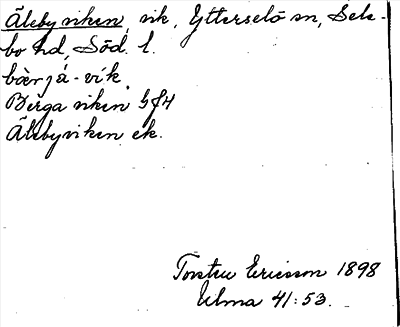 Älebyviken, vik, Ytterselö sn, Sele-
bo hd, Söd. l.
bær̀já-vík.
Berga viken GfH
Älebyviken ek.
Torsten Ericsson 1898
Ulma 41:53.